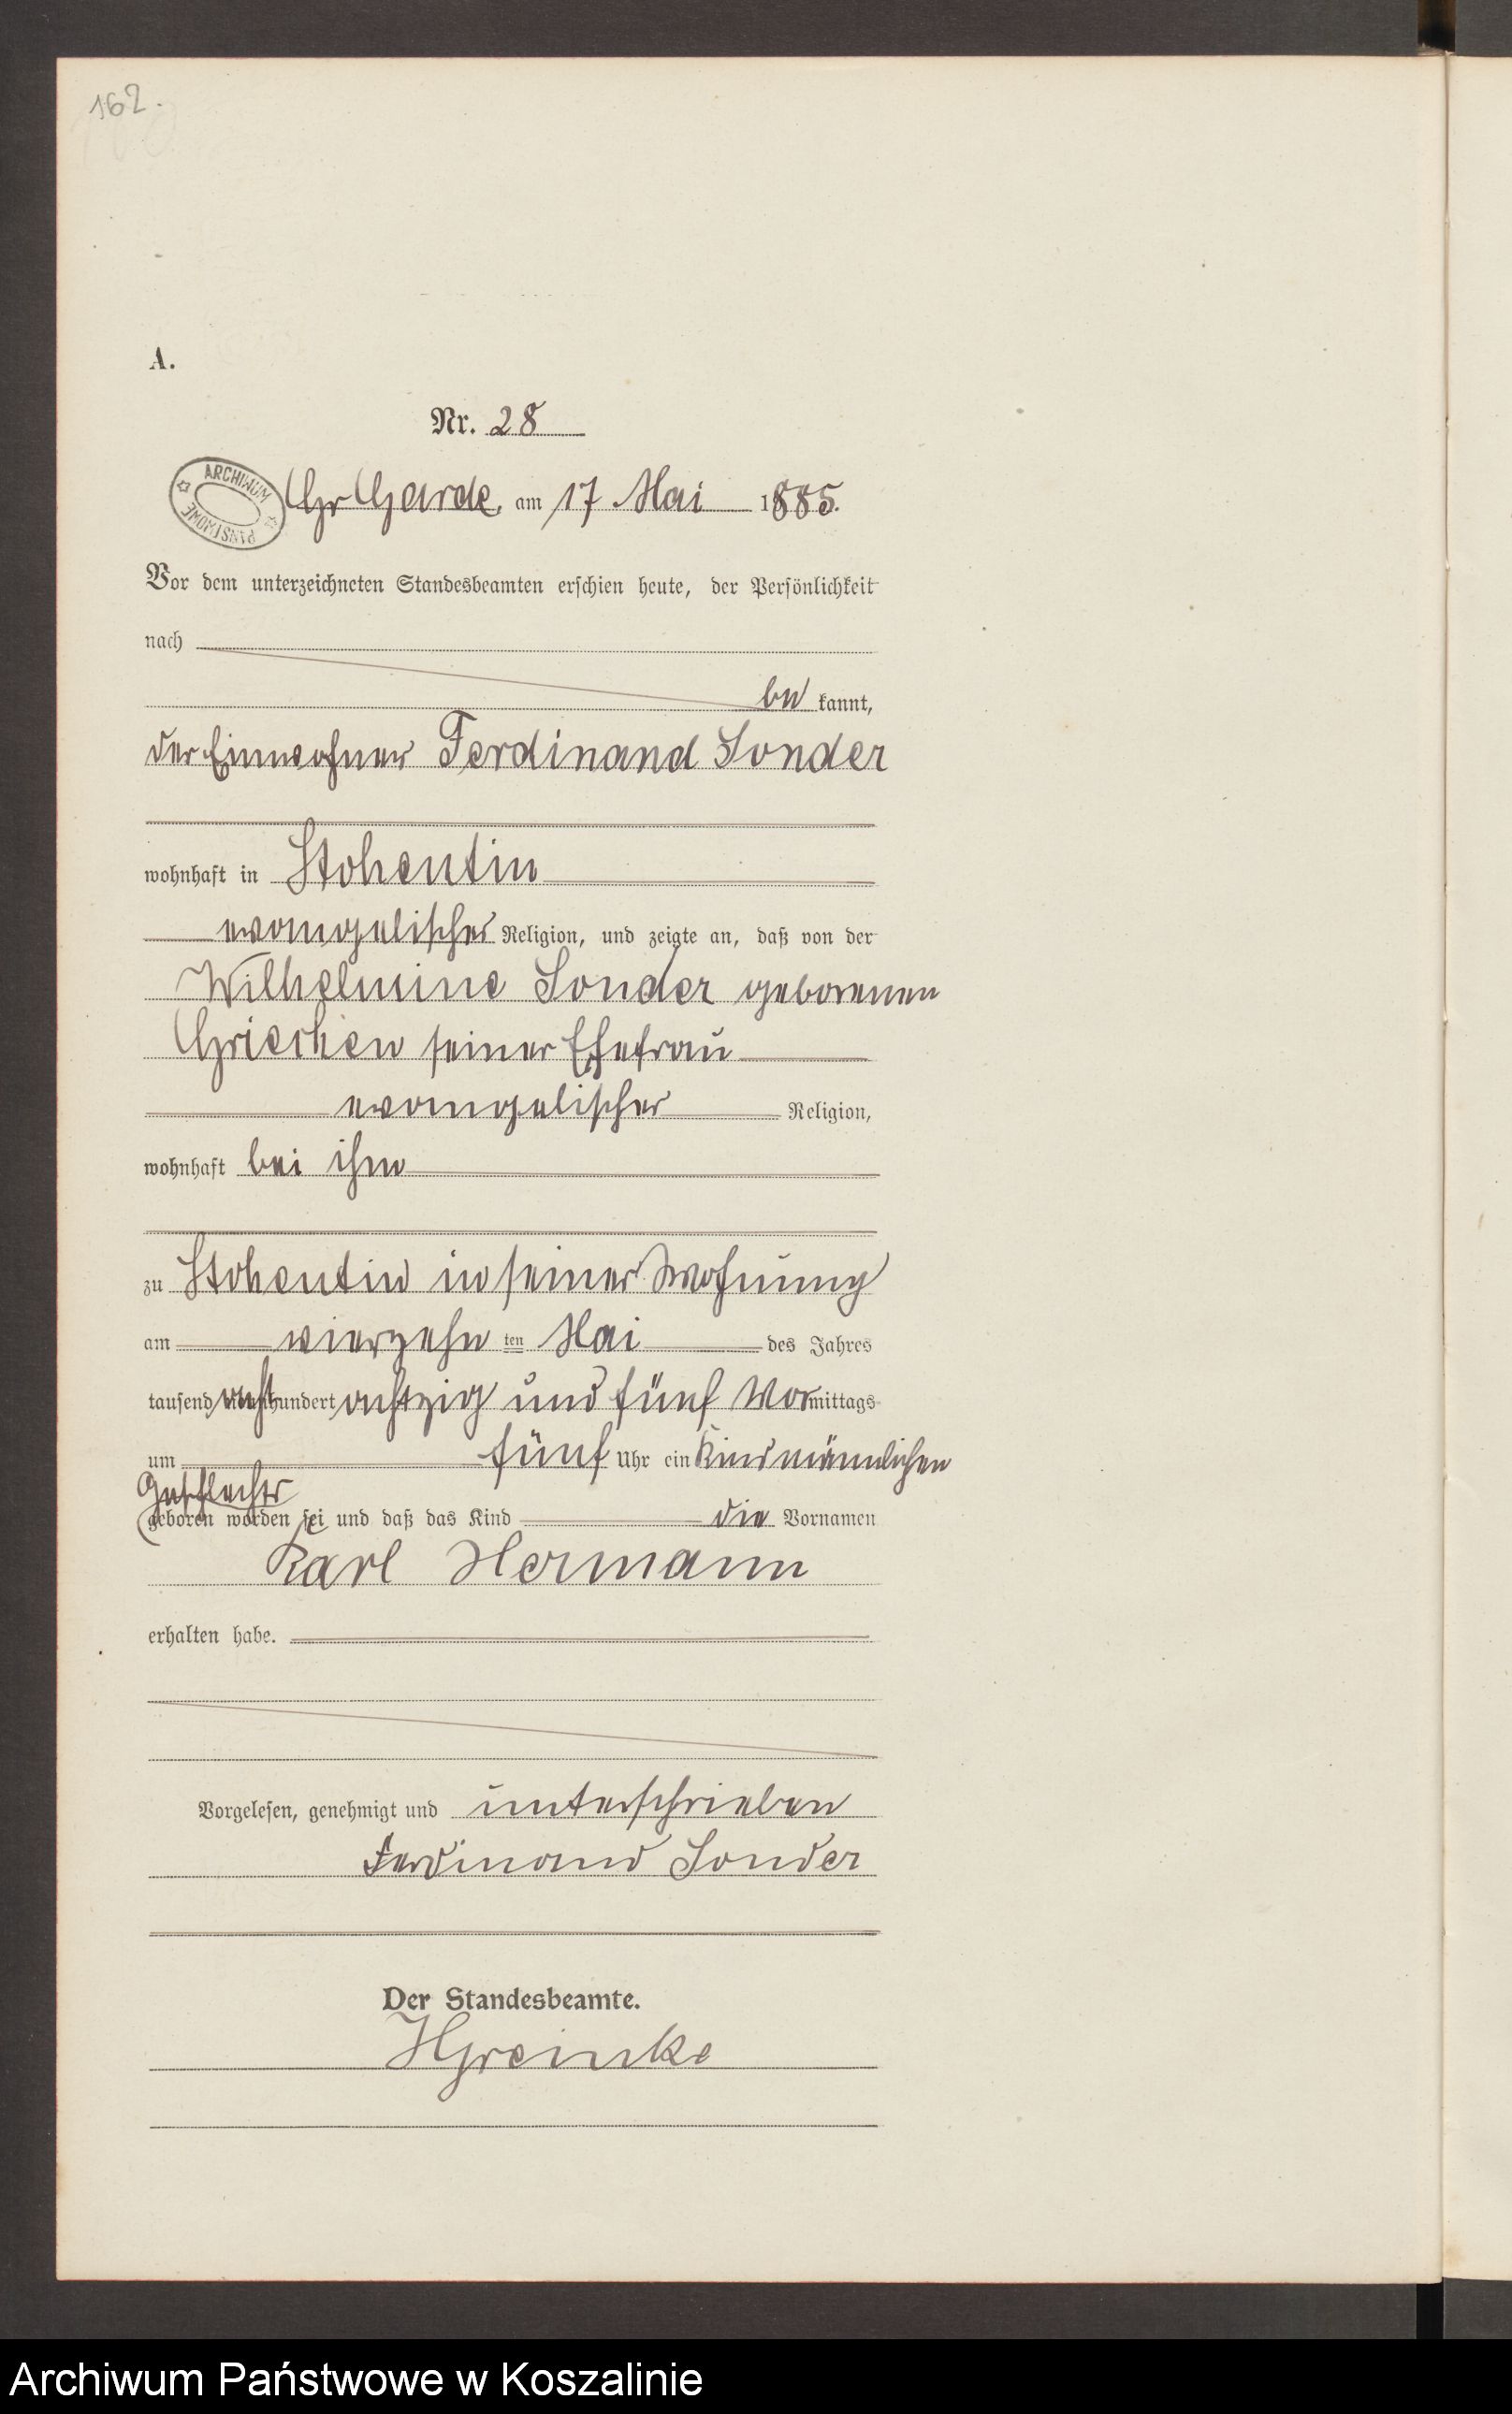 162.
A.
Nr. 28
ARCHIWUM PAŃSTWOWE
Gr Garde, am 17 Mai 1885.
Vor dem unterzeichneten Standesbeamten erschien heute, der Persönlichkeit
nach
be kannt,
der Einwohner Ferdinand Sonder
wohnhaft in Stohentin
evangelischer Religion, und zeigte an, daß von der
Wilhelmine Sonder geborenen
Griechen seiner Ehefrau
evangelischer Religion,
wohnhaft bei ihm
zu Stohentin in seiner Wohnung
am vierzehn ten Mai des Jahres
tausend acht hundert achtzig und fünf Vormittags
um fünf Uhr ein Kind männlichen
Geschlechts
geboren worden sei und daß das Kind die Vornamen
Karl Hermann
erhalten habe.
Vorgelesen, genehmigt und unterschrieben
Ferdinand Sonder
Der Standesbeamte.
HGreinke
Archiwum Państwowe w Koszalinie